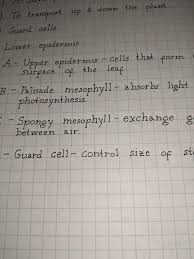 To transport up & down the plant
Guard cells
Lower epidermis
A - Upper epidermis - cells that form
surface of the leaf
B - Palisade mesophyll - absorbs light
photosynthesis.
- Spongy mesophyll - exchange
between air.
- Guard cell - Control size of